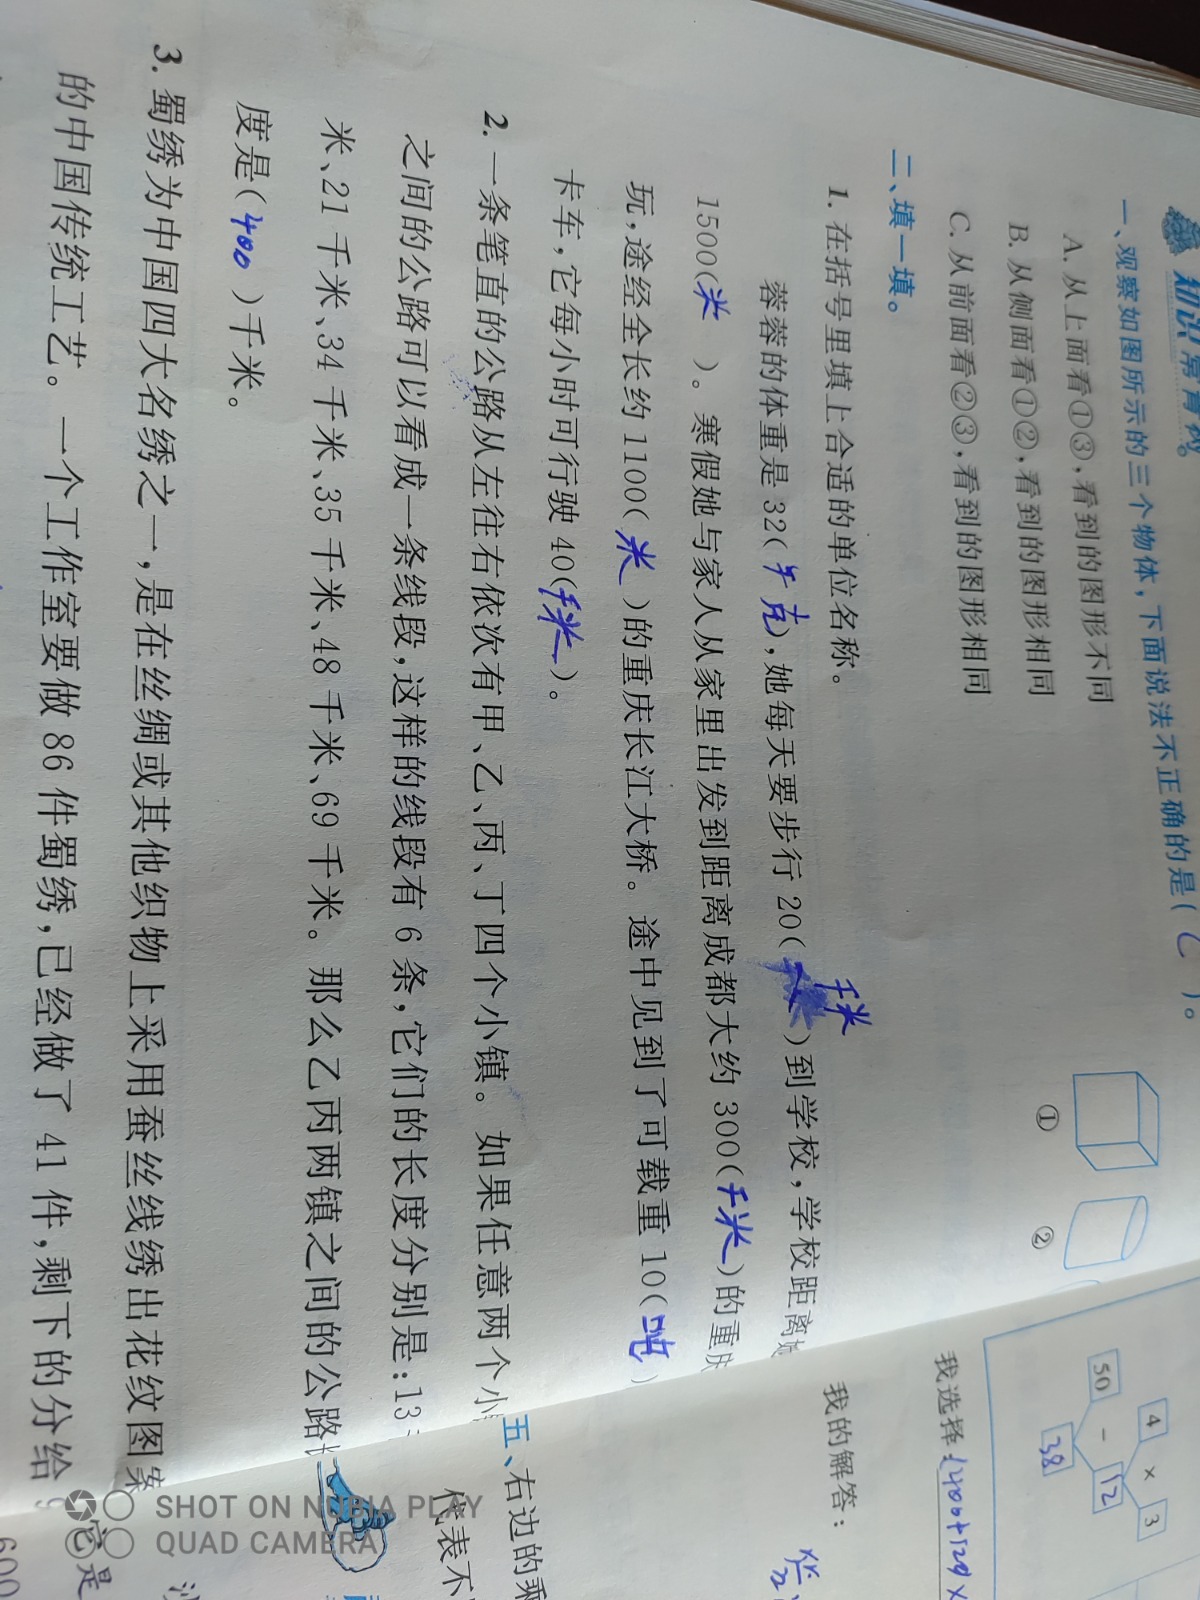 知识常青树
一、观察如图所示的三个物体,下面说法不正确的是( C )。
A.从上面看①③,看到的图形不同
B.从侧面看①②,看到的图形相同
C.从前面看②③,看到的图形相同
①
②
二、填一填。
1.在括号里填上合适的单位名称。
蓉蓉的体重是32(千克),她每天要步行20( 千米 )到学校,学校距离
1500(米 )。寒假她与家人从家里出发到距离成都大约300(千米)的重
玩,途经全长约1100( 米 )的重庆长江大桥。途中见到了可载重10(吨)
卡车,它每小时可行驶40(千米)。
2.一条笔直的公路从左往右依次有甲、乙、丙、丁四个小镇。如果任意两个小
之间的公路可以看成一条线段,这样的线段有6条,它们的长度分别是:13
米、21千米、34千米、35千米、48千米、69千米。那么乙丙两镇之间的公路
度是( 400 )千米。
3.蜀绣为中国四大名绣之一,是在丝绸或其他织物上采用蚕丝线绣出花纹图案
的中国传统工艺。一个工作室要做86件蜀绣,已经做了41件,剩下的分给
4 × 3
50 - 12
38
我选择:1400+120×
我的解答:
五、右边的乘
代表不
它是
600
SHOT ON NUBIA PLAY
QUAD CAMERA